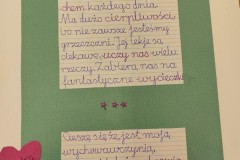 chem każdego dnia.
Ma dużo cierpliwości,
bo nie zawsze jesteśmy
grzeczni. Jej lekcje są
ciekawe, uczy nas wielu
rzeczy. Zabiera nas na
fantastyczne wycieczki.
Cieszę się że jest moją
wychowawczynią,